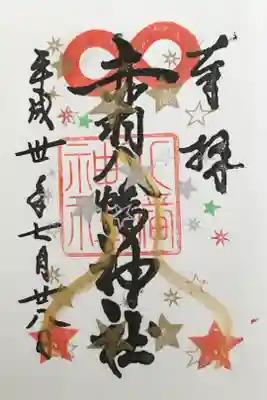 奉拝
赤羽八幡神社
八幡
神社
平成卅年七月廿八日